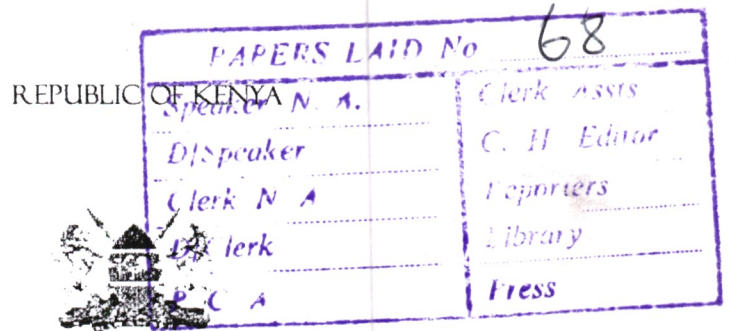 PAPERS LAID No 68
REPUBLIC OF KENYA
Speaker N. A.
D/Speaker
Clerk N A
D/Clerk
P C A
Clerk Assts
C. H Editor
Reporters
Library
Press